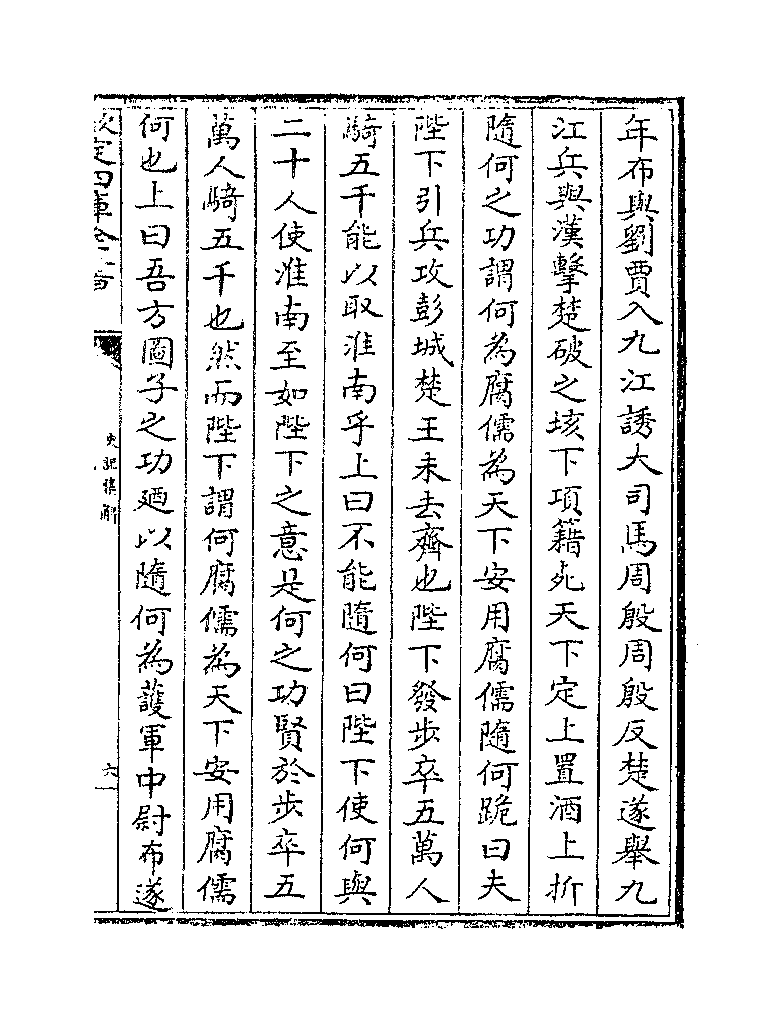 年布與劉賈入九江誘大司馬周殷周殷反楚遂舉九
江兵與漢擊楚破之垓下項籍死天下定上置酒上折
隨何之功謂何為腐儒為天下安用腐儒隨何跪曰夫
陛下引兵攻彭城楚王未去齊也陛下發步卒五萬人
騎五千能以取淮南乎上曰不能隨何曰陛下使何與
二十人使淮南至如陛下之意是何之功賢於步卒五
萬人騎五千也然而陛下謂何腐儒為天下安用腐儒
何也上曰吾方圖子之功廼以隨何為護軍中尉布遂
欽定四庫全書
史記集解
六一